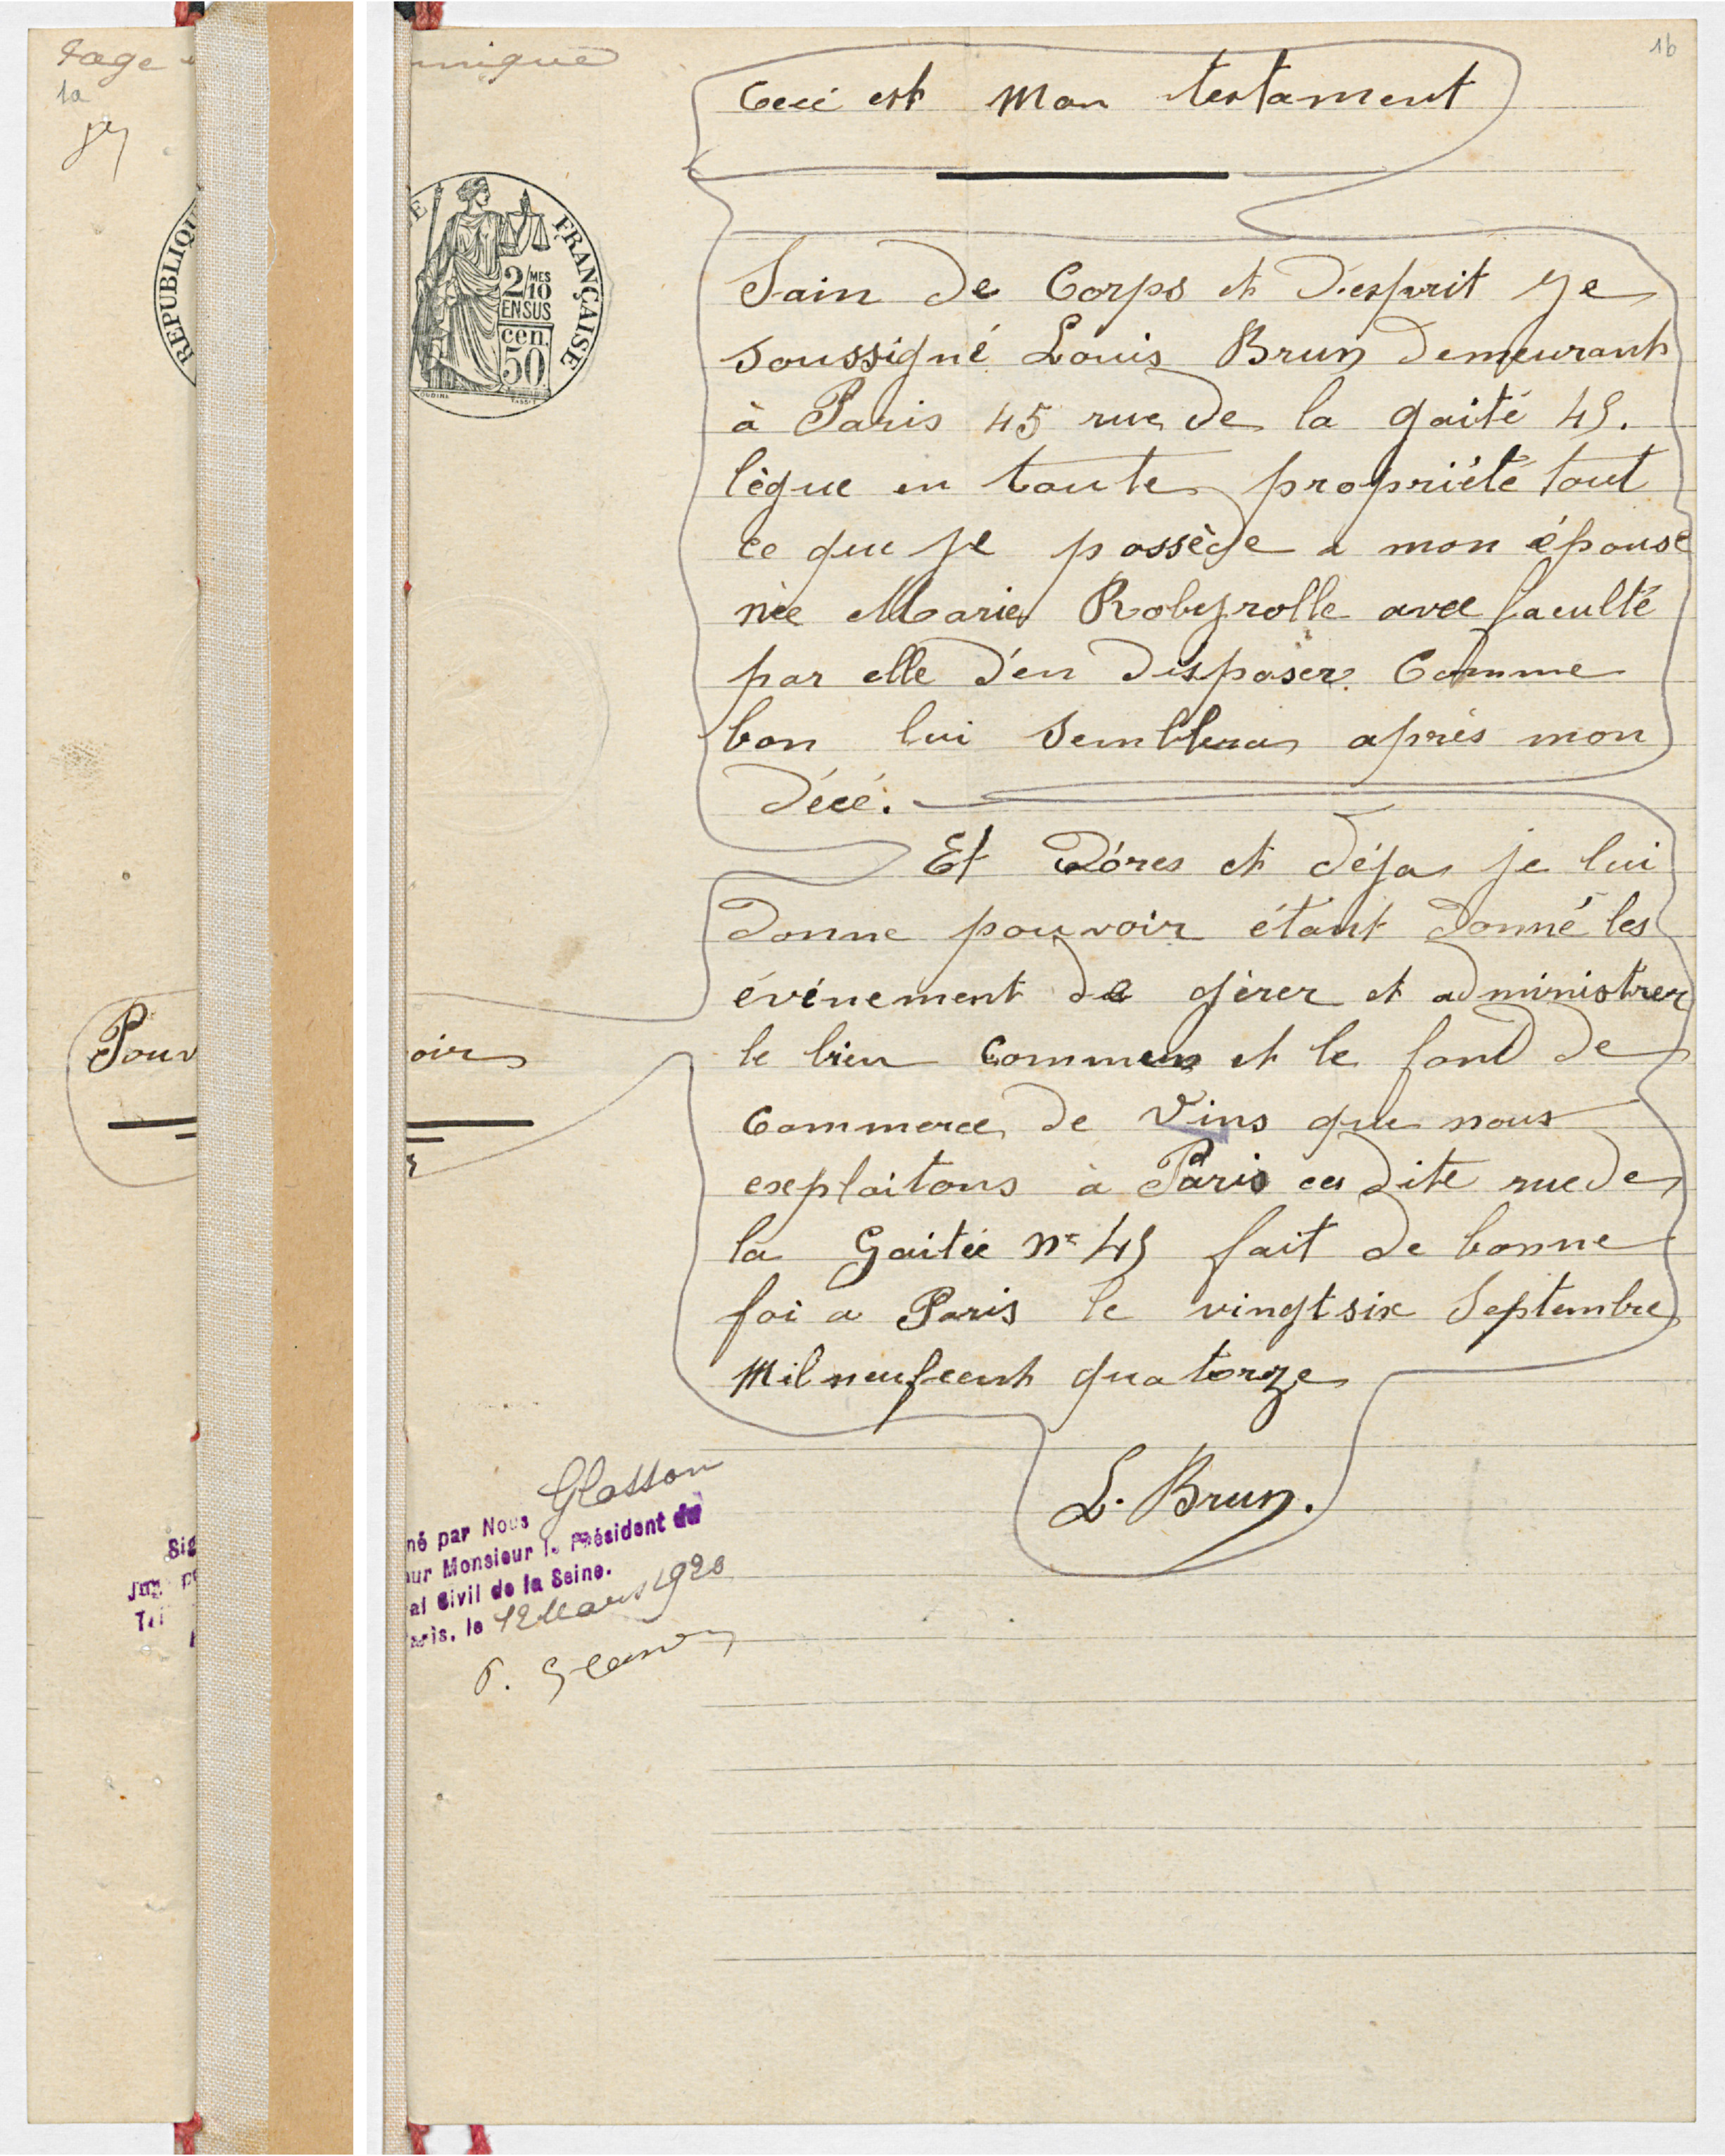 Page unique
1a
1b
Ceci est Mon testament
REPUBLIQUE FRANÇAISE
2/10 MES
EN SUS
50 cen.
Sain de Corps et D'esprit Je
soussigné Louis Brun Demeurant
à Paris 45 rue de la gaité 45.
lègue en toute propriété tout
ce que je possède a mon épouse
née Marie Robeyrolle avec faculté
par elle d'en disposer Comme
bon lui semblera après mon
décé.
Et D'óres et déja je lui
donne pouvoir étant donné les
événement de gérer et administrer
Pouvoir
le bien commun et le fond de
Commerce de Vins que nous
exploitons à Paris dite rue de
la Gaitée n° 45 fait de bonne
foi a Paris le vingt six Septembre
Mil neuf cent quatorze
L. Brun.
Signé par Nous Glasson
Juge pour Monsieur le Président du
Tribunal Civil de la Seine.
Paris, le 12 Mars 1920